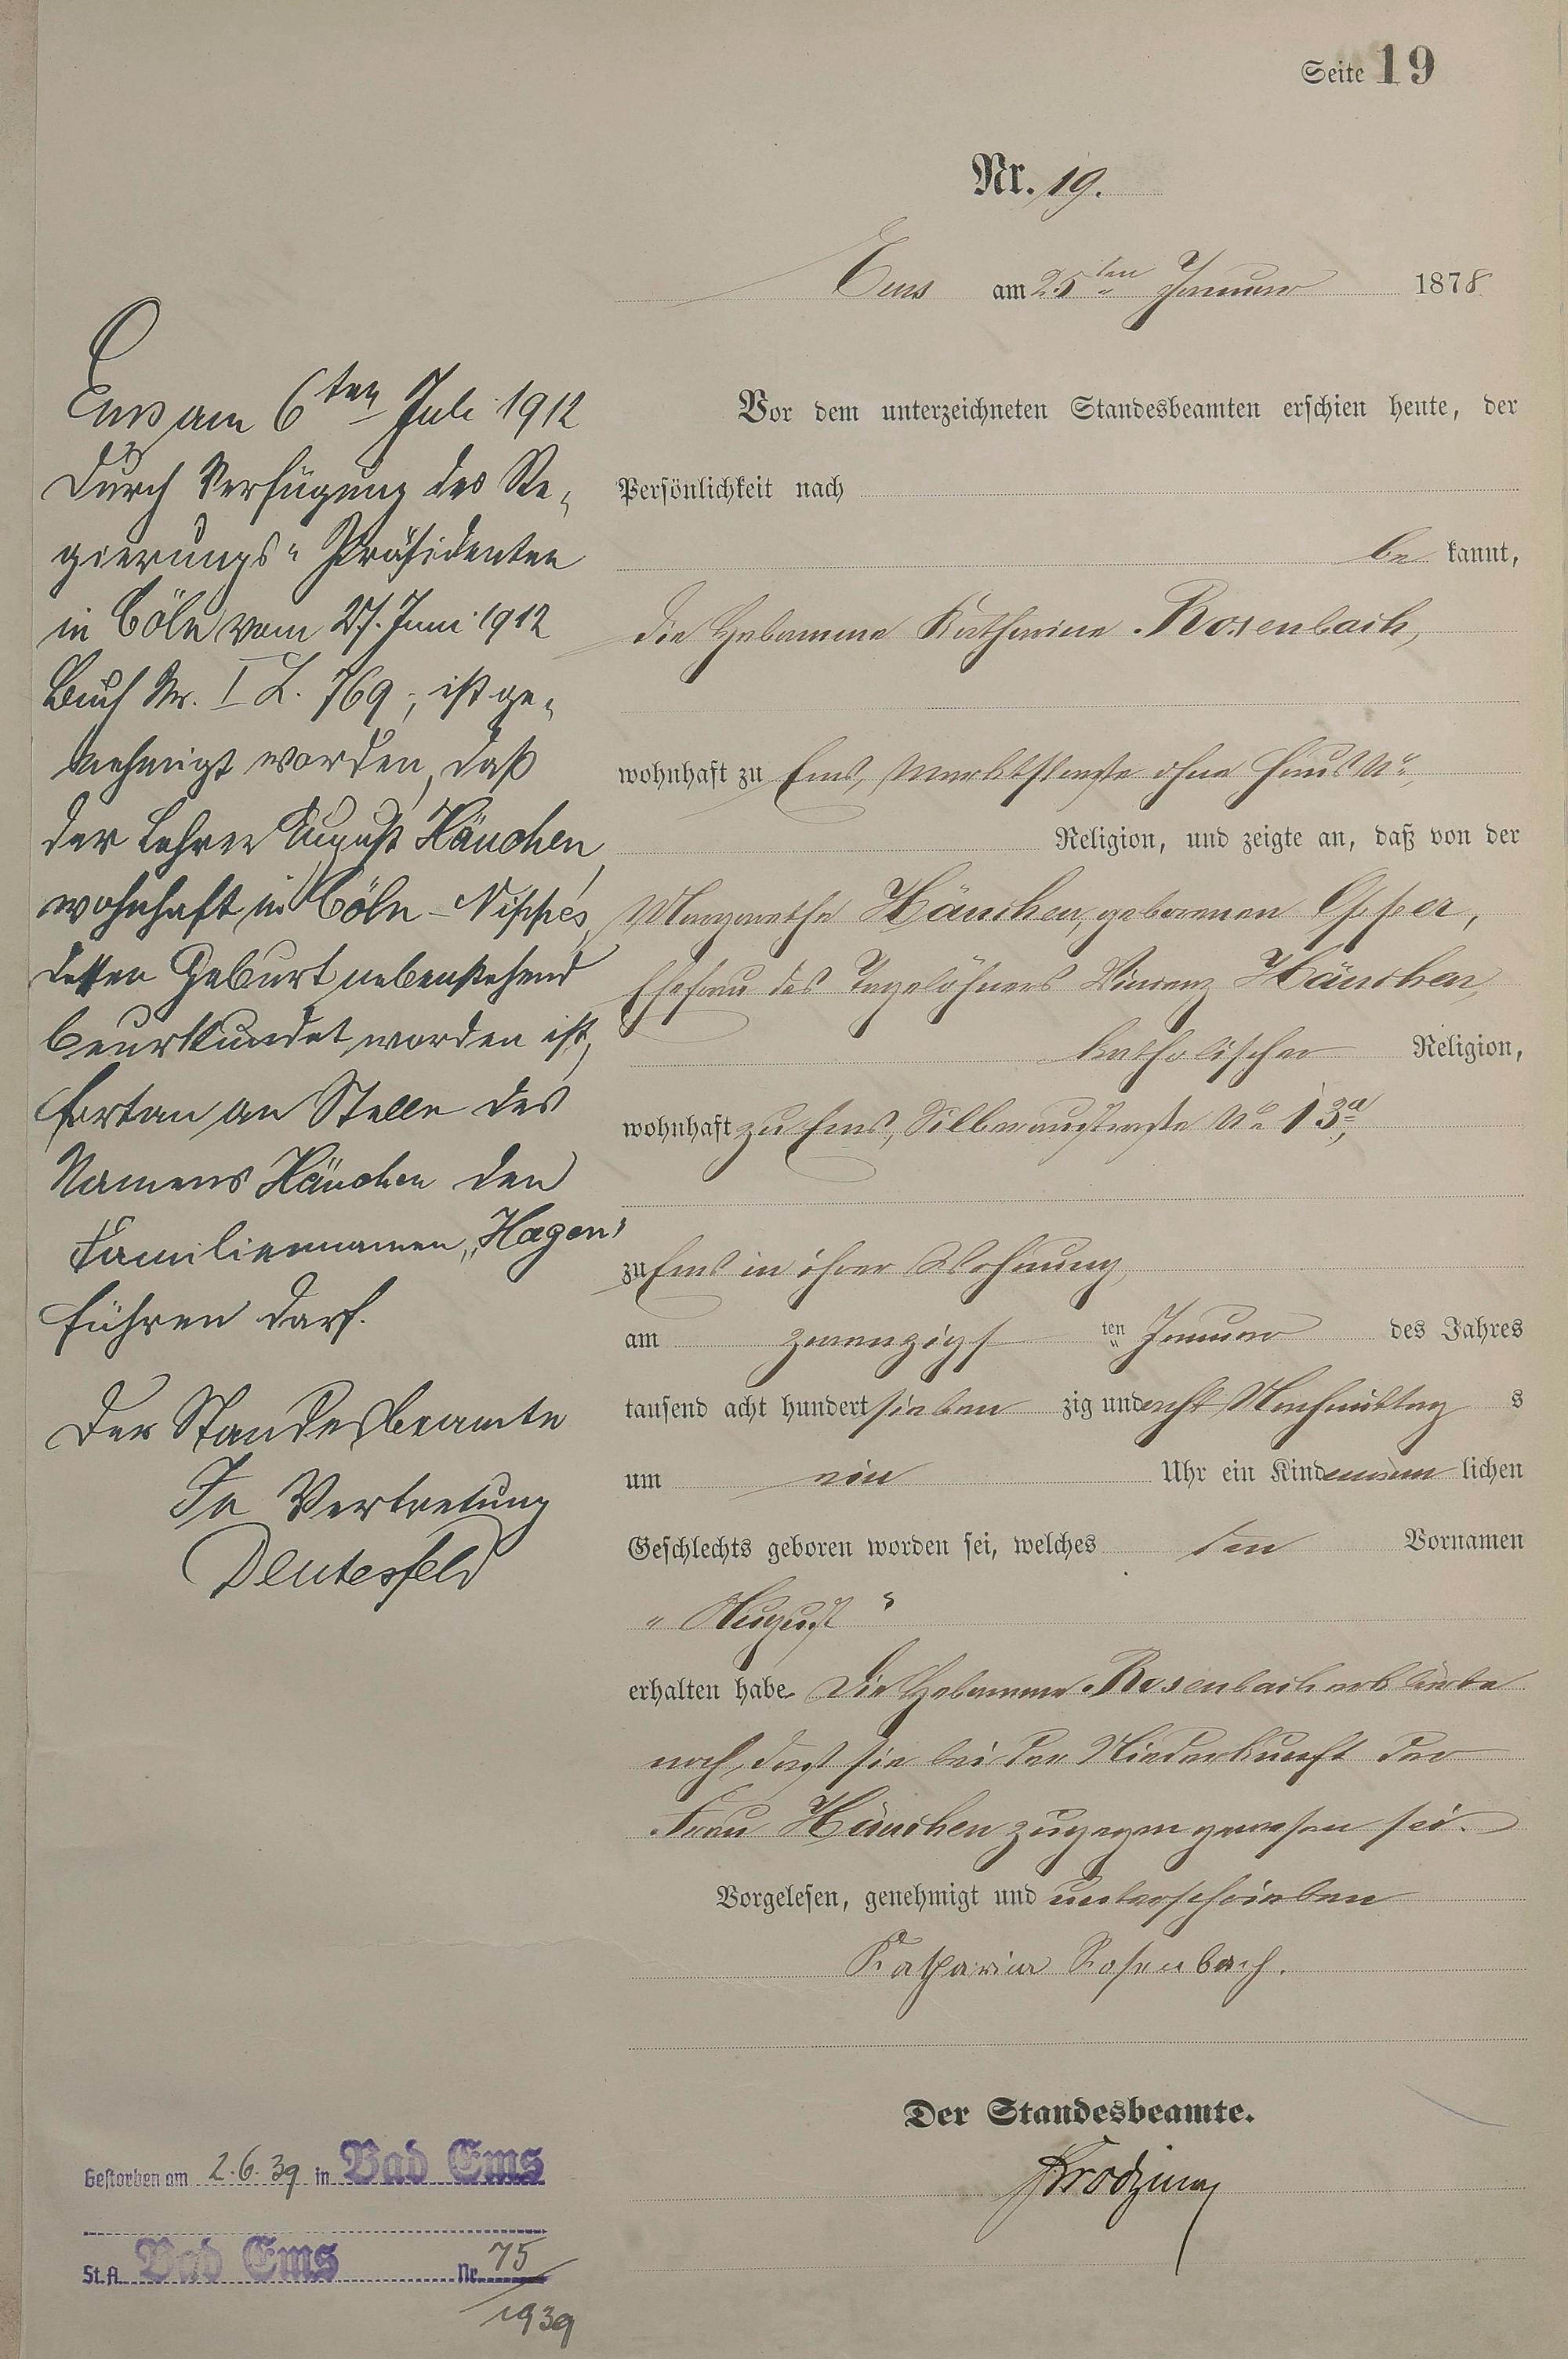 Seite 19
Nr. 19.
Ems am 25ten Januar 1878
Vor dem unterzeichneten Standesbeamten erschien heute, der
Persönlichkeit nach
be kannt,
die Hebamme Katharina Rosenbach,
wohnhaft zu Ems, Marktstraße ohne Haus No,
Religion, und zeigte an, daß von der
Margarethe Hänchen, geborenen Opper,
Ehefrau des Tagelöhners Vincenz Hänchen,
katholischer Religion,
wohnhaft zu Ems, Silberaustraße No 13a,
zu Ems in ihrer Wohnung,
am zwanzigs ten Januar des Jahres
tausend acht hundert sieben zig und acht Nachmittag s
um ein Uhr ein Kind männ lichen
Geschlechts geboren worden sei, welches den Vornamen
„August“
erhalten habe. Die Hebamme Rosenbach erklärte
noch, daß sie bei der Niederkunft der
Frau Hänchen zugegen gewesen sei.
Vorgelesen, genehmigt und unterschrieben
Katharina Rosenbach.
Der Standesbeamte.
Ems am 6ten Juli 1912
Durch Verfügung des Re-
gierungs-Präsidenten
in Cöln vom 27. Juni 1912
Buch Nr. I L. 769, ist ge-
nehmigt worden, daß
der Lehrer August Hänchen,
wohnhaft in Cöln-Nippes,
dessen Geburt nebenstehend
beurkundet worden ist,
fortan an Stelle des
Namens Hänchen den
Familiennamen „Hagen“
führen darf.
Der Standesbeamte
In Vertretung
Deutesfeld
Gestorben am 2.6.39 in Bad Ems
St.A. Bad Ems Nr. 75
1939